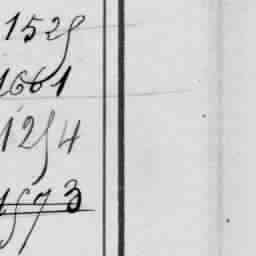 1529
1661
1294
1973